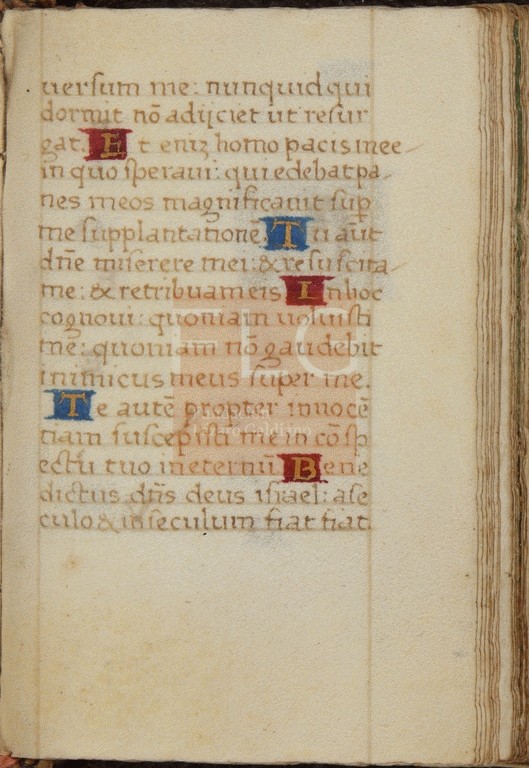 uersum me: nunquid qui
dormit nō adijciet ut resur
gat. Et eniz homo pacis mee
in quo speraui: qui edebat pa-
nes meos magnificauit sup̄
me supplantationē. Tu aut̄
dn̄e miserere mei: & resuscita
me: & retribuam eis In hoc
cognoui: quoniam uoluisti
me: quoniam nō gaudebit
inimicus meus super me.
Te autē propter innocē
tiam suscepisti me in cō sp
ectu tuo in eternū. Bene
dictus dn̄s deus israel: a se
culo & in seculum fiat fiat
FLG
Lázaro Galdiano